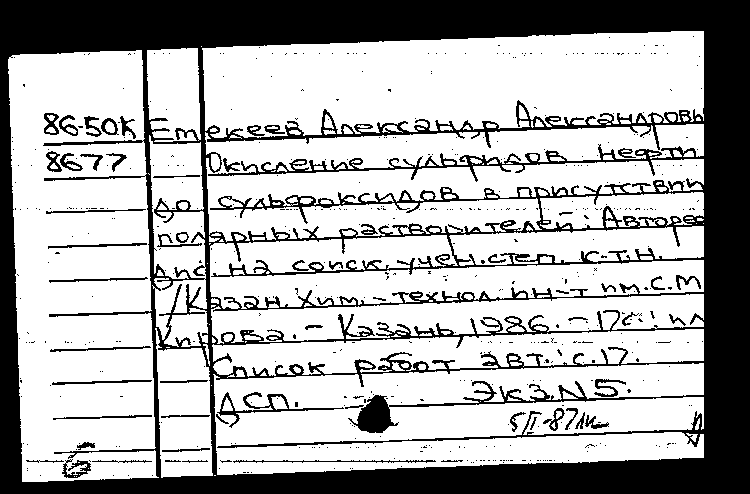 86-50К Емекеев, Александр Александровы
8677 Окисление сульфидов нефти
до сульфоксидов в присутствии
полярных растворителей: Авторе
дис. на соиск. учен. степ. к.т.н.
/Казан. хим.-технол. ин-т им. С.М
Кирова. - Казань, 1986. - 17с.: ил
Список работ авт.: с.17.
ДСП. Экз.N5.
5/II-87
6